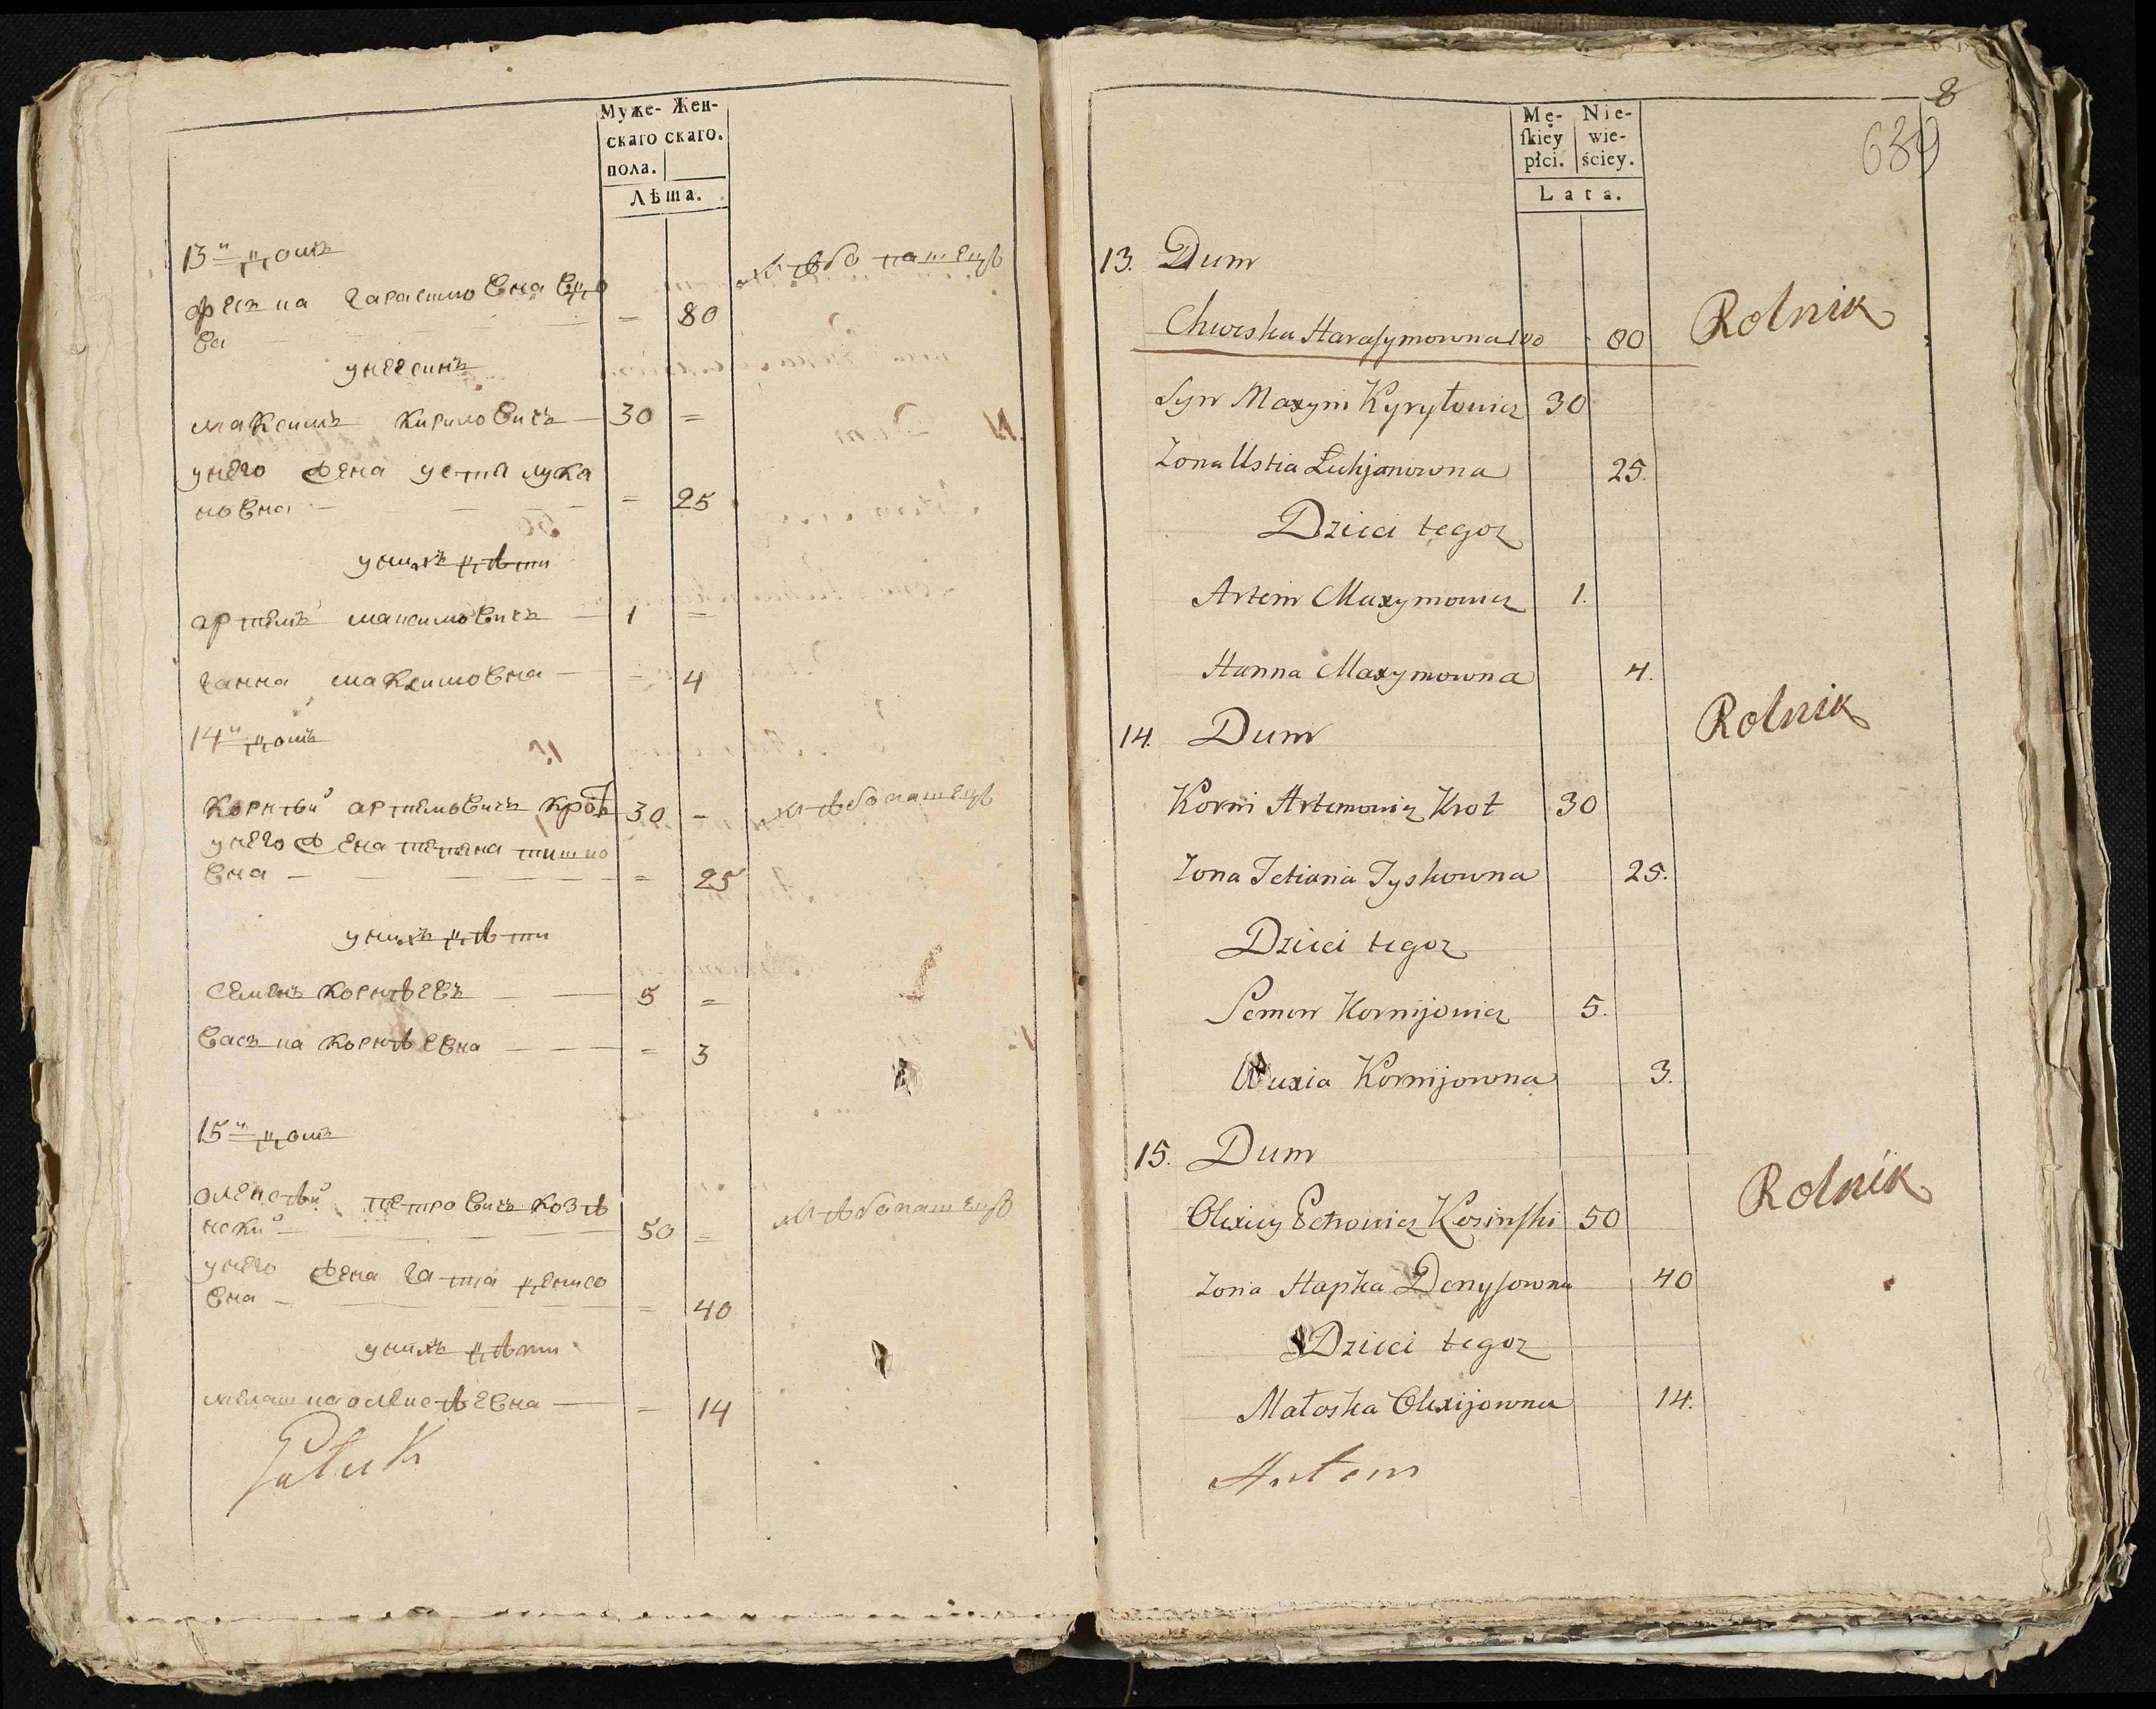 Муже-
скаго
пола.
Жен-
скаго.
Лѣта.
13й домъ
феска гарасимовна вдо
ва = 80 хлѣбопашецъ
у нее синъ
максимъ кириловичъ 30 =
у него жена устя лукя
новна = 25
у нихъ дѣти
артемъ максимовичъ 1 =
ганна максимовна = 4
14й домъ
корнѣй артемовичъ кротъ 30 = хлѣбопашецъ
у него жена тетяна тишко
вна = 25
у нихъ дѣти
семенъ корнѣевъ 5 =
васка корнѣевна = 3
15й домъ
олексѣй петровичъ козѣ
нскій 50 = хлѣбопашецъ
у него жена гапка денисо
вна = 40
у нихъ дѣти
мелашка олексѣевна = 14
8
639
Mę-
skiey
płci.
Nie-
wie-
ściey.
Lata.
13. Dum
Chweska Harasymowna wdo 80 Rolnik
Syn Maxym Kyryłowicz 30
Zona Ustia Łukjanowna 25.
Dzieci tegoz
Artem Maxymowicz 1.
Hanna Maxymowna 4.
14. Dum Rolnik
Korni Artemowicz Krot 30
Zona Tetiana Tyszkowna 25.
Dzieci tegoz
Semen Kornijowicz 5.
Wuxia Kornijowna 3.
15. Dum
Olexiey Petrowicz Kozinski 50 Rolnik
Zona Hapka Denysowna 40
Dzieci tegoz
Małoszka Olexijowna 14.